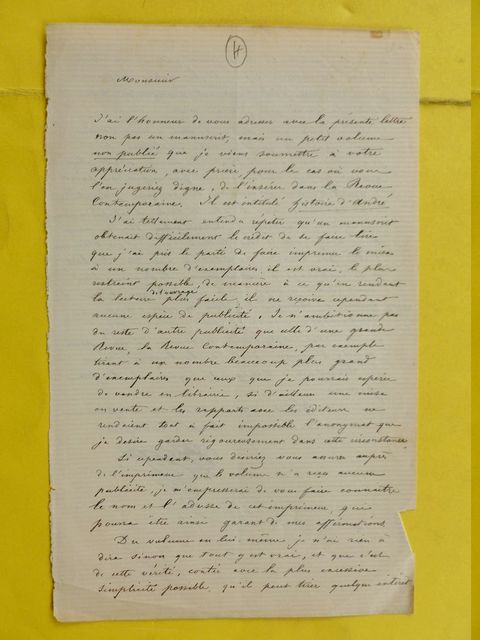 H
Monsieur
J'ai l'honneur de vous adresser avec la présente lettre
non pas un manuscrit, mais un petit volume
non publié que je viens soumettre à votre
appréciation, avec prière, pour le cas où vous
l'en jugeriez digne, de l'insérer dans la Revue
Contemporaine. Il est intitulé Histoire d'André.
J'ai tellement entendu répéter qu'un manuscrit
obtenait difficilement le crédit de se faire lire
que j'ai pris le parti de faire imprimer le mien
à un nombre d'exemplaires, il est vrai, le plus
restreint possible, de manière à ce qu'en rendant
la lecture plus facile, il ne reçoive cependant
de l'ouvrage
aucune espèce de publicité. Je n'ambitionne pas
du reste d'autre publicité que celle d'une grande
Revue, la Revue Contemporaine, par exemple
tirant à un nombre beaucoup plus grand
d'exemplaires que ceux que je pourrais espérer
de vendre en librairie, si d'ailleurs une mise
en vente et les rapports avec les éditeurs ne
rendaient tout à fait impossible l'anonymat que
je désire garder rigoureusement dans cette circonstance.
Si cependant, vous désiriez vous assurer auprès
de l'imprimeur que le volume n'a reçu aucune
publicité, je m'empresserai de vous faire connaître
le nom et l'adresse de cet imprimeur, que
pourra être ainsi garant de mes affirmations.
Du volume en lui-même je n'ai rien à
dire sinon que tout y est vrai, et que c'est
de cette vérité, contée avec la plus excessive
simplicité possible, qu'il peut tirer quelque intérêt